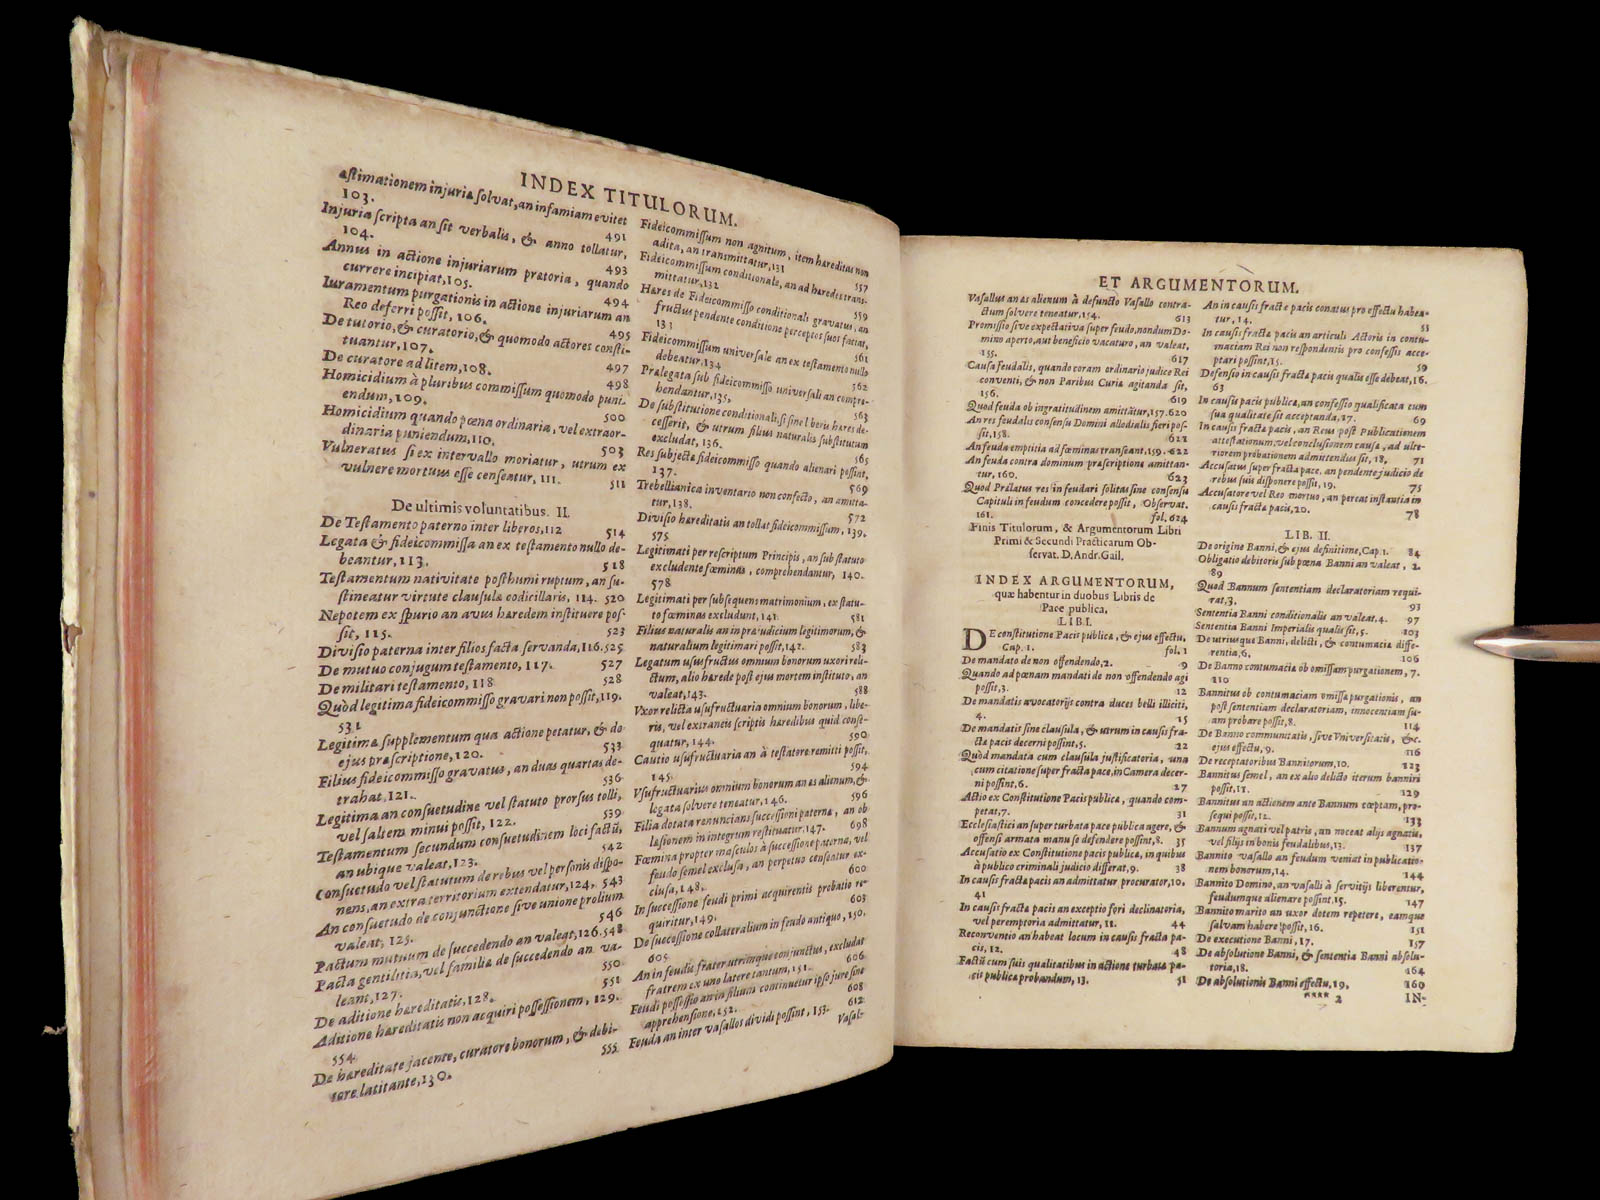 INDEX TITULORUM.
æstimationem injuriæ solvat, an infamiam evitet
103. 491
Injuria scripta an sit verbalis, & anno tollatur,
104. 493
Annus in actione injuriarum prætoria, quando
currere incipiat, 105. 494
Iuramentum purgationis in actione injuriarum an
Reo deferri possit, 106. 495
De tutorio, & curatorio, & quomodo actores consti-
tuantur, 107. 497
De curatore ad litem, 108. 498
Homicidium à pluribus commissum quomodo puni-
endum, 109. 500
Homicidium quando pœna ordinaria, vel extraor-
dinaria puniendum, 110. 503
Vulneratus si ex intervallo moriatur, utrum ex
vulnere mortuus esse censeatur, 111. 511
De ultimis voluntatibus. II.
De Testamento paterno inter liberos, 112 514
Legata & fideicommissa an ex testamento nullo de-
beantur, 113. 518
Testamentum nativitate posthumi ruptum, an su-
stineatur virtute clausulæ codicillaris, 114. 520
Nepotem ex spurio an avus hæredem instituere pos-
sit, 115. 523
Divisio paterna inter filios facta servanda, 116. 525
De mutuo conjugum testamento, 117. 527
De militari testamento, 118 528
Quòd legitima fideicommisso gravari non possit, 119.
531
Legitimæ supplementum qua actione petatur, & de
ejus præscriptione, 120. 533
Filius fideicommisso gravatus, an duas quartas de-
trahat, 121. 536
Legitima an consuetudine vel statuto prorsus tolli,
vel saltem minui possit, 122. 539
Testamentum secundum consuetudinem loci factũ,
an ubique valeat, 123. 542
Consuetudo vel statutum de rebus vel personis dispo-
nens, an extra territorium extendatur, 124. 543
An consuetudo de conjunctione sive unione prolium
valeat, 125. 546
Pactum mutuum de succedendo an valeat, 126. 548
Pacta gentilitia, vel familiæ de succedendo an va-
leant, 127. 550
De aditione hæreditatis, 128. 551
Aditione hæreditatis non acquiri possessionem, 129.
554
De hæreditate jacente, curatore bonorum, & debi-
tore latitante, 130. 555
Fideicommissum non agnitum, item hæreditas non
adita, an transmittatur, 131 557
Fideicommissum conditionale, an ad hæredes trans-
mittatur, 132 559
Hæres de Fideicommisso conditionali gravatus, an
fructus pendente conditione perceptos suos faciat,
133 561
Fideicommissum universale an ex testamento nullo
debeatur, 134 562
Prælegata sub fideicommisso universali an compre-
hendantur, 135, 563
De substitutione conditionali, si sine liberis hæres de-
cesserit, & utrum filius naturalis substitutum
excludat, 136. 565
Res subjecta fideicommisso quando alienari possint,
137. 569
Trebellianica inventario non confecto, an amitta-
tur, 138. 572
Divisio hæreditatis an tollat fideicommissum, 139.
575
Legitimati per rescriptum Principis, an substituto
excludente fœminas, comprehendantur, 140.
578
Legitimati per subsequens matrimonium, ex statu-
to fœminas excludunt, 141. 581
Filius naturalis an in præjudicium legitimorum, &
naturalium legitimari possit, 142. 583
Legatum ususfructus omnium bonorum uxori reli-
ctum, alio hærede post ejus mortem instituto, an
valeat, 143. 588
Vxor relicta usufructuaria omnium bonorum, libe-
ris, vel extraneis scriptis hæredibus quid conse-
quatur, 144. 590
Cautio usufructuaria an à testatore remitti possit,
145. 594
Vsufructuarius omnium bonorum an æs alienum, &
legata solvere teneatur, 146. 596
Filia dotata renuncians successioni paternæ, an ob
læsionem in integrum restituatur. 147. 698
Fœmina propter masculos à successione paterna, vel
feudo semel exclusa, an perpetuo censeatur ex-
clusa, 148. 600
In successione feudi primi acquirentis probatio re-
quiritur, 149. 603
De successione collateralium in feudo antiquo, 150.
605
An in feudis frater utrimque conjunctus, excludat
fratrem ex uno latere tantum, 151. 606
Feudi possessio an in filium continuetur ipso jure sine
apprehensione, 152. 608
Feuda an inter vasallos dividi possint, 153. 612
Vasal-
ET ARGUMENTORUM.
Vasallus an æs alienum à defuncto Vasallo contra-
ctum solvere teneatur, 154. 613
Promissio sive expectativa super feudo, nondum Do-
mino aperto, aut beneficio vacaturo, an valeat,
155. 617
Causa feudalis, quando coram ordinario judice Rei
conventi, & non Paribus Curiæ agitanda sit,
156. 619
Quod feuda ob ingratitudinem amittãtur, 157. 620
An res feudalis consensu Domini allodialis fieri pos-
sit, 158. 621
An feuda emptitia ad fœminas transeant, 159. 622
An feuda contra dominum præscriptione amittan-
tur, 160. 623
Quod Prælatus res in feudari solitas sine consensu
Capituli in feudum concedere possit, Observat.
161. fol. 624
Finis Titulorum, & Argumentorum Libri
Primi & Secundi Practicarum Ob-
servat. D. Andr. Gail.
INDEX ARGUMENTORUM,
quæ habentur in duobus Libris de
Pace publica.
LIB I.
DE constitutione Pacis publicæ, & ejus effectu,
Cap. 1. fol. 1
De mandato de non offendendo, 2. 9
Quando ad pœnam mandati de non offendendo agi
possit, 3. 12
De mandatis avocatorijs contra duces belli illiciti,
4. 15
De mandatis sine clausula, & utrum in causis fra-
ctæ pacis decerni possint, 5. 22
Quòd mandata cum clausula justificatoria, una
cum citatione super fracta pace, in Camera decer-
ni possint, 6. 27
Actio ex Constitutione Pacis publicæ, quando com-
petat, 7. 31
Ecclesiastici an super turbata pace publica agere, &
offensi armata manu se defendere possint, 8. 35
Accusatio ex Constitutione pacis publicæ, in quibus
à publico criminali judicio differat, 9. 38
In causis fractæ pacis an admittatur procurator, 10.
41
In causis fractæ pacis an exceptio fori declinatoria,
vel peremptoria admittatur, 11. 44
Reconventio an habeat locum in causis fractæ pa-
cis, 12. 48
Factũ cum suis qualitatibus in actione turbatæ pa-
cis publicæ probandum, 13. 51
An in causis fractæ pacis conatus pro effectu habea-
tur, 14. 55
In causis fractæ pacis an articuli Actoris in contu-
maciam Rei non respondentis pro confessis acce-
ptari possint, 15. 59
Defensio in causis fractæ pacis qualis esse debeat, 16.
63
In causis pacis publicæ, an confessio qualificata cum
sua qualitate sit acceptanda, 17. 69
In causis fractæ pacis, an Reus post Publicationem
attestationum, vel conclusionem causæ, ad ulte-
riorem probationem admittendus sit, 18. 71
Accusatus super fracta pace, an pendente judicio de
rebus suis disponere possit, 19. 75
Accusatore vel Reo mortuo, an pereat instantia in
causis fractæ pacis, 20. 78
LIB. II.
De origine Banni, & ejus definitione, Cap. 1. 84
Obligatio debitoris sub pœna Banni an valeat, 2.
89
Quod Bannum sententiam declaratoriam requi-
rat, 3. 93
Sententia Banni conditionalis an valeat, 4. 97
Sententia Banni Imperialis qualis sit, 5. 103
De utriusque Banni, delicti, & contumaciæ diffe-
rentia, 6, 106
De Banno contumaciæ ob omissam purgationem, 7.
110
Bannitus ob contumaciam omissæ purgationis, an
post sententiam declaratoriam, innocentiam su-
am probare possit, 8. 114
De Banno communitatis, sive Vniversitatis, &c.
ejus effectu, 9. 116
De receptatoribus Bannitorum, 10. 123
Bannitus semel, an ex alio delicto iterum banniri
possit, 11. 129
Bannitus an actionem ante Bannum cœptam, pro-
sequi possit, 12. 133
Bannum agnati vel patris, an noceat alijs agnatis,
vel filijs in bonis feudalibus, 13. 137
Bannito vasallo an feudum veniat in publicatio-
nem bonorum, 14. 144
Bannito Domino, an vasalli à servitijs liberentur,
feudumque alienare possint, 15. 147
Bannito marito an uxor dotem repetere, eamque
salvam habere possit, 16. 151
De executione Banni, 17. 157
De absolutione Banni, & sententia Banni absolu-
toria, 18. 164
De absolutionis Banni effectu, 19, 160
**** 2 IN-